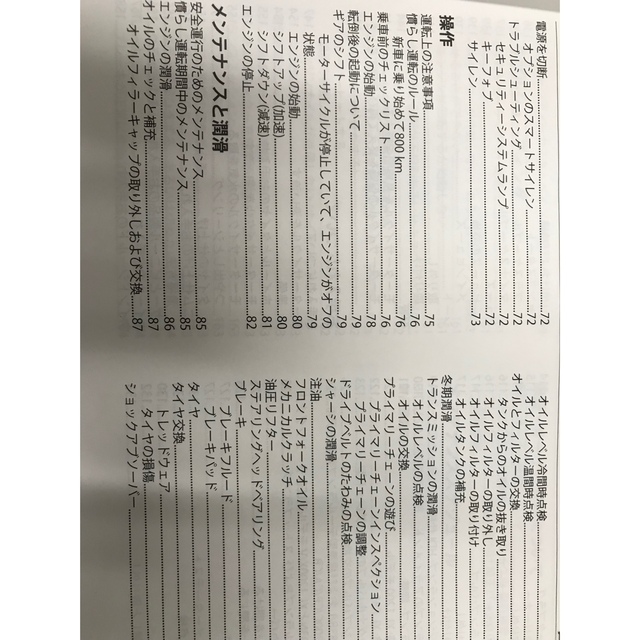 電源を切断..........72
オプションのスマートサイレン..........72
トラブルシューティング..........72
セキュリティーシステムランプ..........72
キーフォブ..........72
サイレン..........73
操作
運転上の注意事項..........75
慣らし運転のルール..........76
新車に乗り始めて800 km..........76
乗車前のチェックリスト..........76
エンジンの始動..........78
転倒後の起動について..........79
ギアのシフト..........79
モーターサイクルが停止していて、エンジンがオフの
状態..........79
エンジンの始動..........80
シフトアップ(加速)..........80
シフトダウン(減速)..........81
エンジンの停止..........82
メンテナンスと潤滑
安全運行のためのメンテナンス..........85
慣らし運転期間中のメンテナンス..........85
エンジンの潤滑..........86
オイルのチェックと補充..........87
オイルフィラーキャップの取り外しおよび交換..........87
オイルレベル冷間時点検..........
オイルレベル温間時点検..........
オイルとフィルターの交換..........
タンクからのオイルの抜き取り..........
オイルフィルターの取り外し..........
オイルフィルターの取り付け..........
オイルタンクの補充..........
冬期潤滑..........
トランスミッションの潤滑..........
オイルレベルの点検..........
オイルの交換..........
プライマリーチェーンの遊び..........
プライマリーチェーンインスペクション..........
プライマリーチェーンの調整..........
ドライブベルトのたわみの点検..........
シャーシの潤滑..........
注油..........
フロントフォークオイル..........
メカニカルクラッチ..........
油圧リフター..........
ステアリングヘッドベアリング..........
ブレーキ..........
ブレーキフルード..........
ブレーキパッド..........
タイヤ..........
タイヤ交換..........
トレッドウェア..........
タイヤの損傷..........
ショックアブソーバー..........